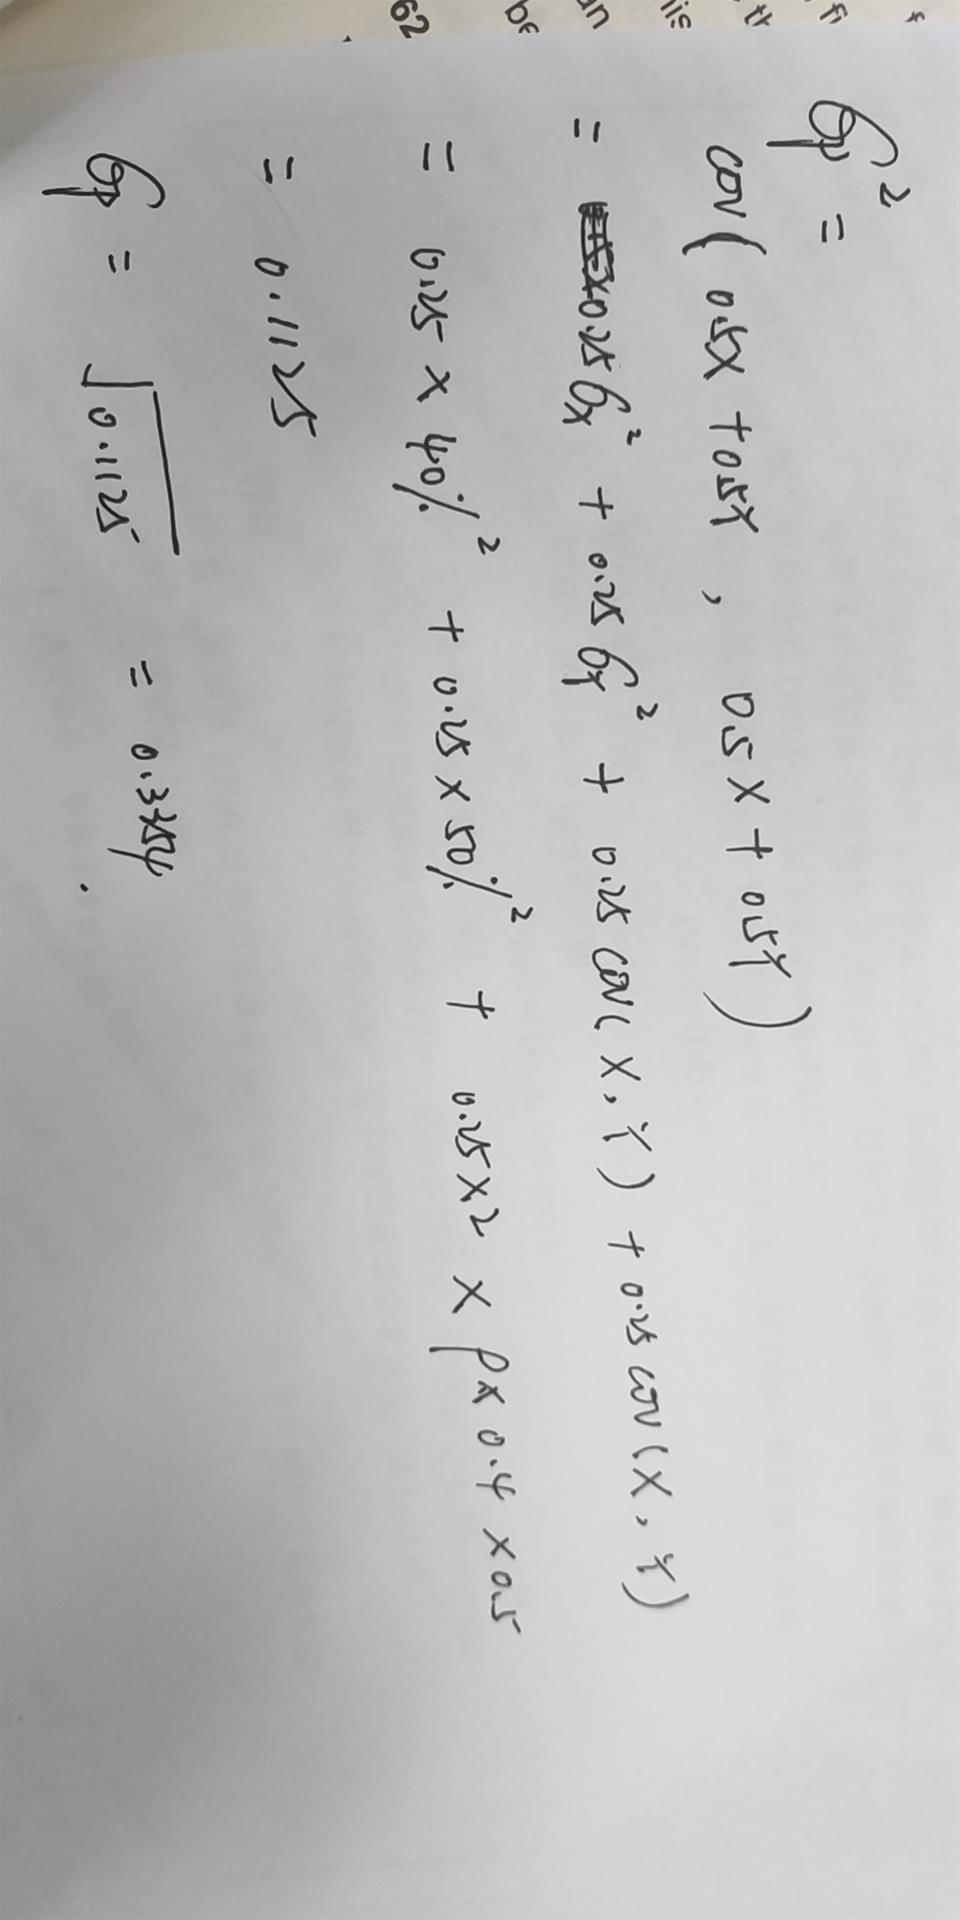 σp² =
cov( 0.5X + 0.5Y , 0.5X + 0.5Y )
= 0.25σx² + 0.25σY² + 0.25 cov( X , Y ) + 0.25 cov ( X , Y )
= 0.25 × 40%² + 0.25 × 50%² + 0.25×2 × ρ × 0.4 × 0.5
= 0.1125
σp = √0.1125 = 0.3354 .
62